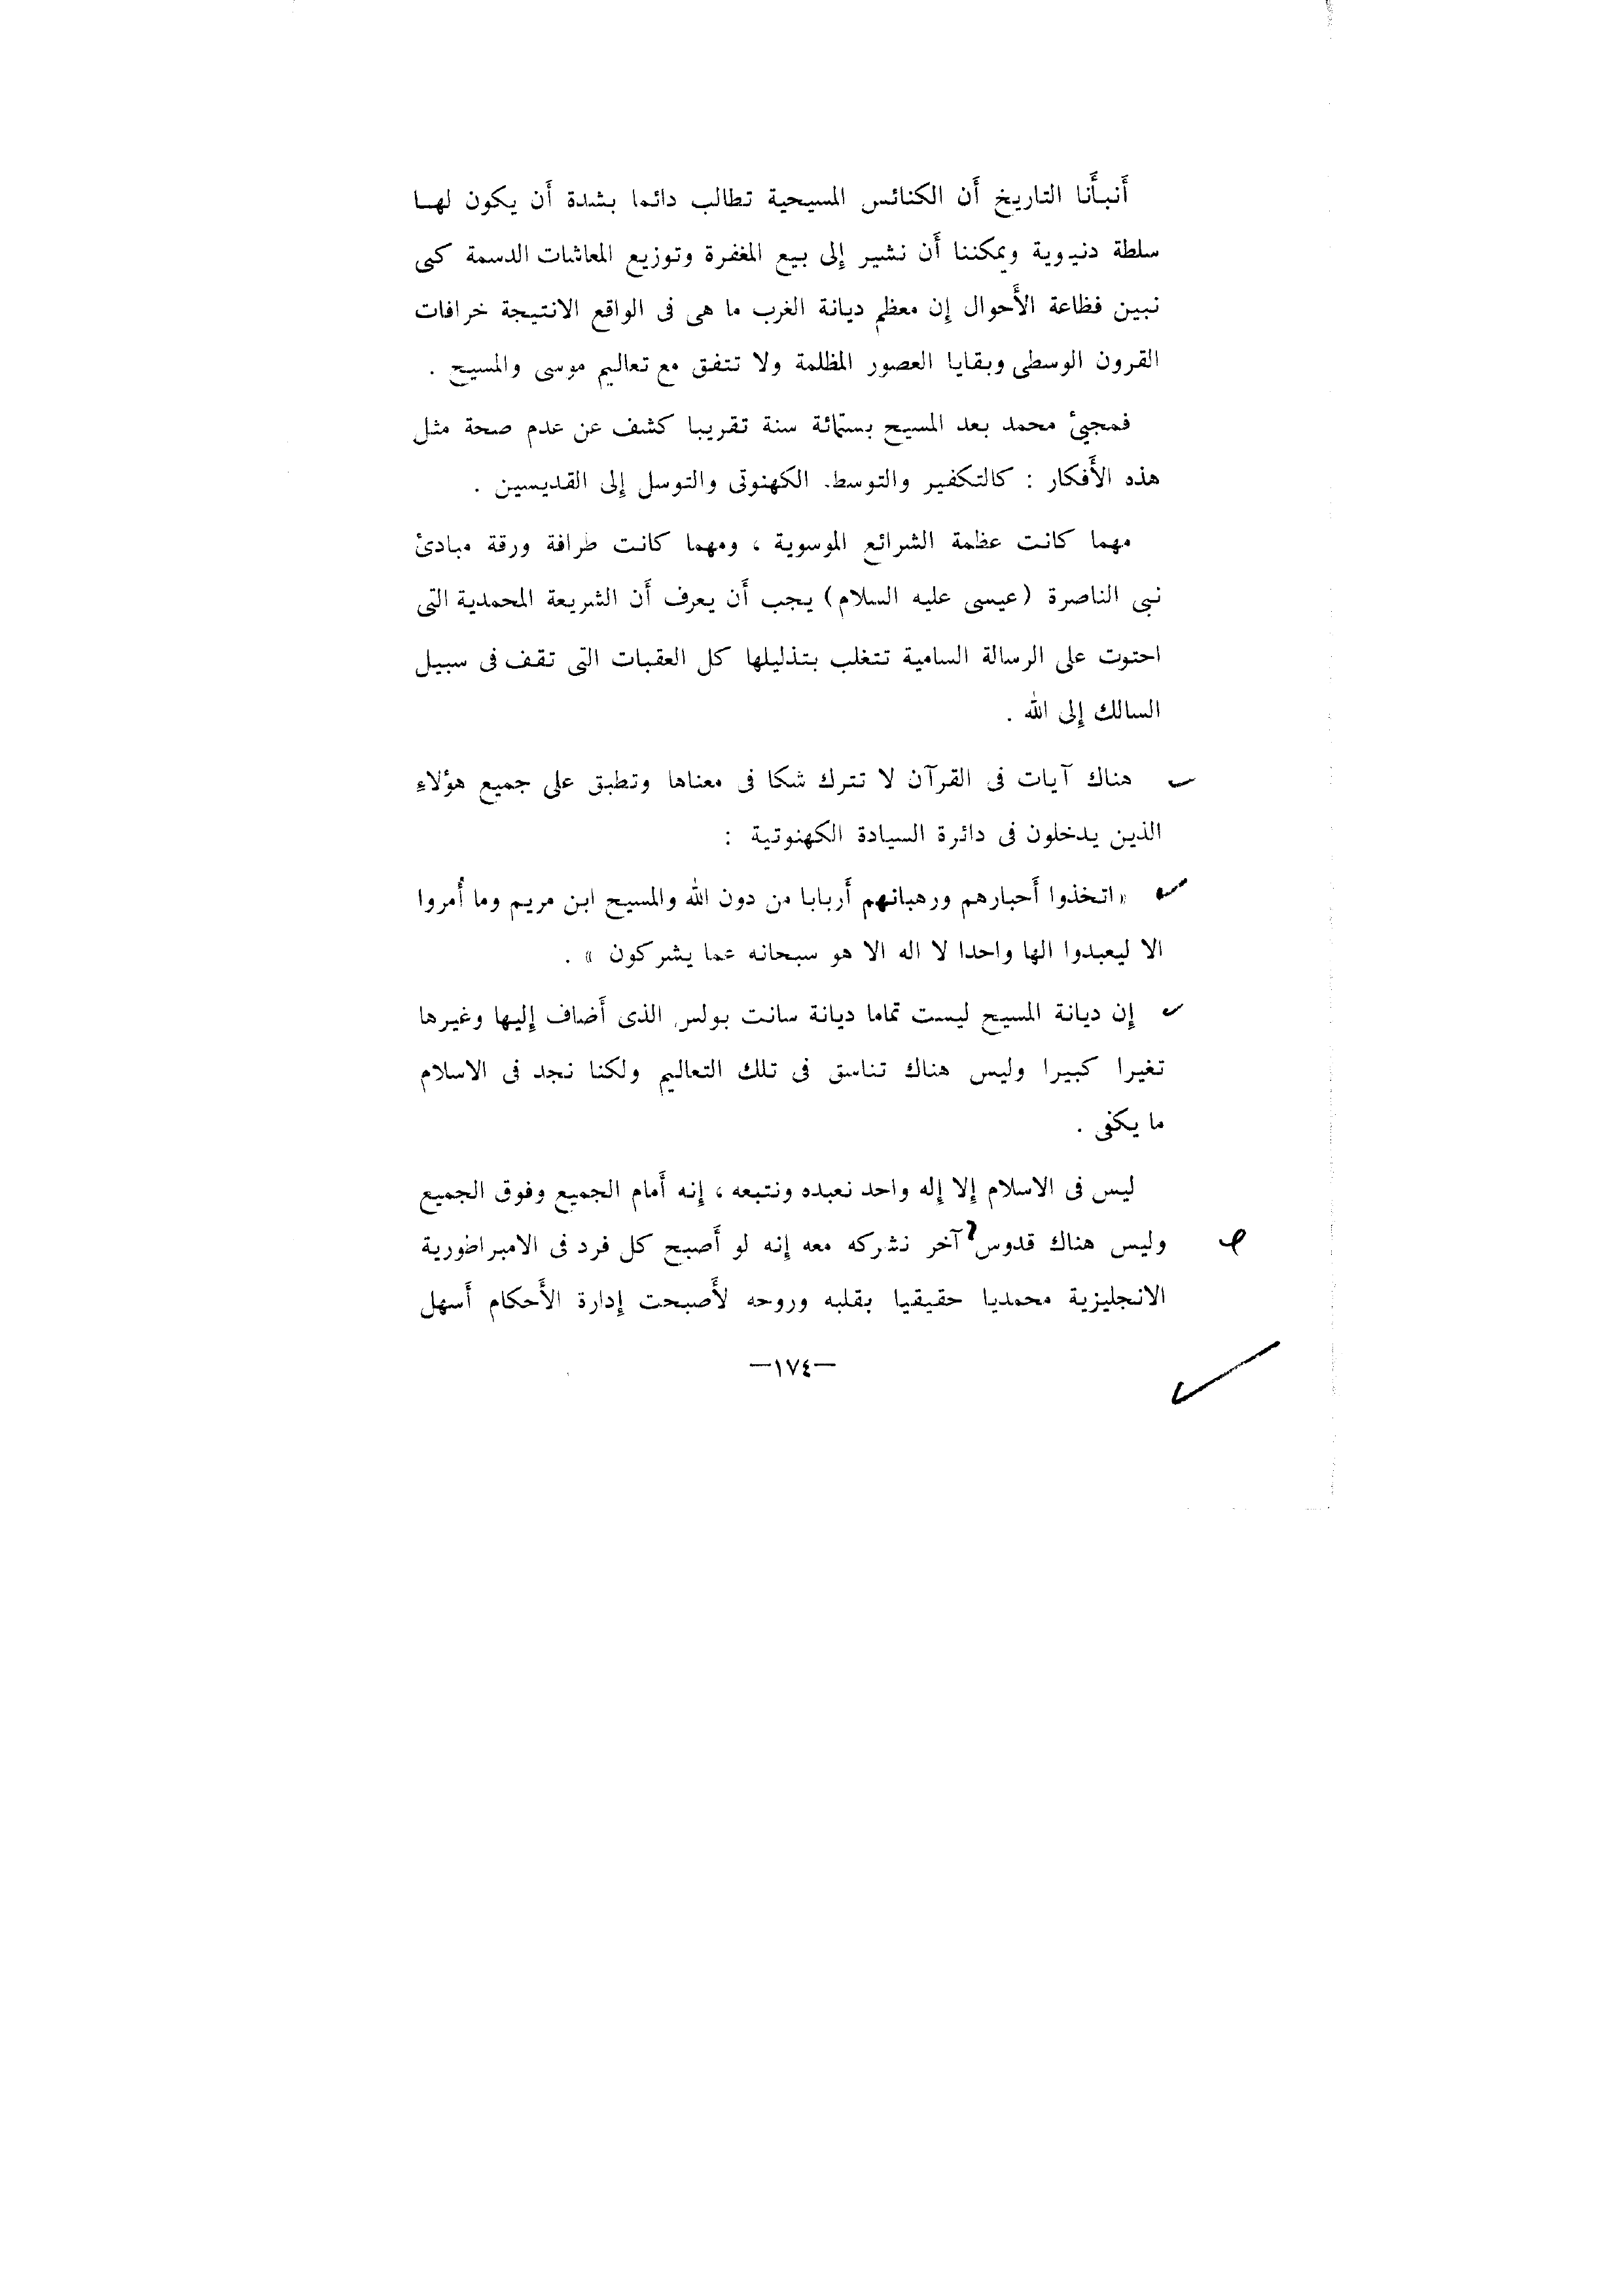 أَنبأَنا التاريخ أَن الكنائس المسيحية تطالب دائما بشدة أَن يكون لهــا
سلطة دنيوية ويمكننا أَن نشير إلى بيع المغفرة وتوزيع المعاشات الدسمة كى
نبين فظاعة الأَحوال إن معظم ديانة الغرب ما هى فى الواقع الانتيجة خرافات
القرون الوسطى وبقايا العصور المظلمة ولا تتفق مع تعاليم موسى والمسيح .
فمجيئ محمد بعد المسيح بستمائة سنة تقريبا كشف عن عدم صحة مثل
هذه الأَفكار : كالتكفير والتوسط الكهنوتى والتوسل إلى القديسين .
مهما كانت عظمة الشرائع الموسوية ، ومهما كانت طرافة ورقة مبادئ
نبى الناصرة (عيسى عليه السلام) يجب أَن يعرف أَن الشريعة المحمدية التى
احتوت على الرسالة السامية تتغلب بتذليلها كل العقبات التى تقف فى سبيل
السالك إلى الله .
هناك آيات فى القرآن لا تترك شكا فى معناها وتطبق على جميع هؤلاءِ
الذين يدخلون فى دائرة السيادة الكهنوتية :
« اتخذوا أَحبارهم ورهبانهم أَربابا من دون الله والمسيح ابن مريم وما أُمروا
الا ليعبدوا الها واحدا لا اله الا هو سبحانه عما يشركون » .
إن ديانة المسيح ليست تماما ديانة سانت بولس الذى أَضاف إليها وغيرها
تغيرا كبيرا وليس هناك تناسق فى تلك التعاليم ولكنا نجد فى الاسلام
ما يكفى .
ليس فى الاسلام إلا إله واحد نعبده ونتبعه ، إنه أَمام الجميع وفوق الجميع
وليس هناك قدوس آخر نشركه معه إنه لو أَصبح كل فرد فى الامبراطورية
الانجليزية محمديا حقيقيا بقلبه وروحه لأَصبحت إدارة الأَحكام أَسهل
—١٧٤—